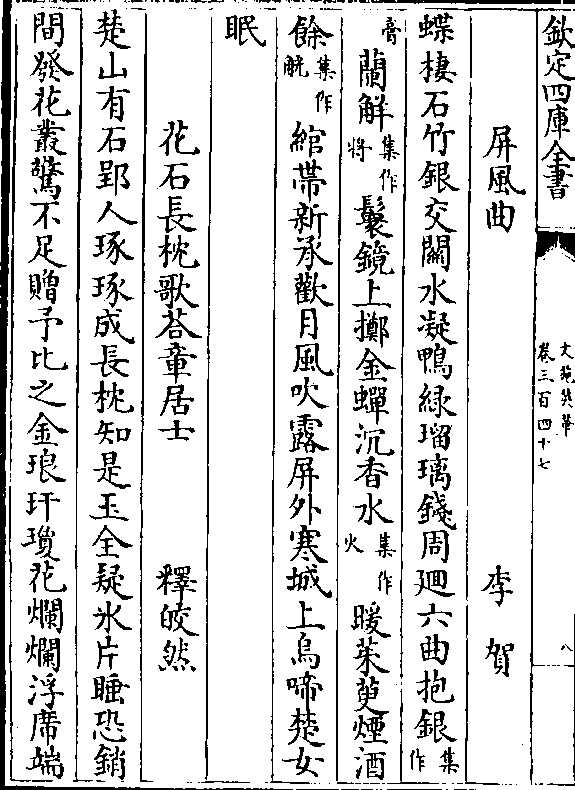 欽定四庫全書
文苑英華
卷三百四十七
八
屏風曲 李賀
蝶棲石竹銀交關水凝鴨緑瑠璃錢周廻六曲抱銀集作
膏蘭解集作將鬟鏡上擲金蟬沉香水集作火暖茱萸煙酒
餘集作觥綰帶新承歡月風吹露屏外寒城上烏啼楚女
眠
花石長枕歌荅章居士 釋皎然
楚山有石郢人琢琢成長枕知是玉全疑氷片睡恐銷
間發花叢驚不足贈予比之金琅玕瓊花爛爛浮席端